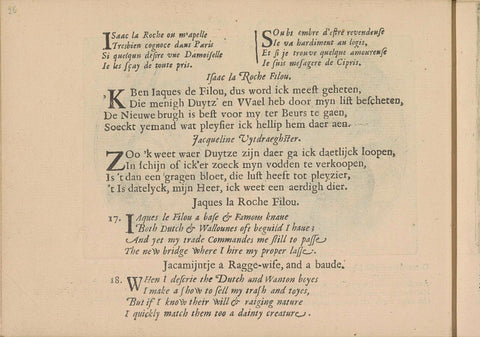 26
ISaac la Roche on m'apelle
Tresbien cognoce dans Paris
Si quelqun desire vue Damoiselle
Ie les sçay de toute pris.
SOubs ombre d'estre revendeuse
Ie va hardiment au logis,
Et si je trouve quelque amoureuse
Ie suis mesagere de Cipris.
Isaac la Roche Filou.
'K Ben Iaques de Filou, dus word ick meest geheten,
Die menigh Duytz' en VVael heb door myn list bescheten,
De Nieuwe brugh is best voor my ter Beurs te gaen,
Soeckt yemand wat pleysier ick hellip hem daer aen.
Jacqueline Uytdraeghster.
ZOo 'k weet waer Duytze zijn daer ga ick daetlijck loopen,
In schijn of ick'er zoeck myn vodden te verkoopen,
Is 't dan een gragen bloet, die lust heeft tot pleyzier,
't Is datelyck, mijn Heer, ick weet een aerdigh dier.
Jaques la Roche Filou.
17. IAques le Filou a base & Famous knaue
Both Dutch & Wallounes oft beguild I haue;
And yet my trade Commandes me still to passe
The new bridge Where I hire my proper lasse.
Jacamijntje a Ragge-wise, and a baude.
18. WHen I descrie the Dutch and Wanton boyes
I make a show to sell my trash and toyes,
But if I know their will & raiging nature
I quickly match them too a dainty creature.